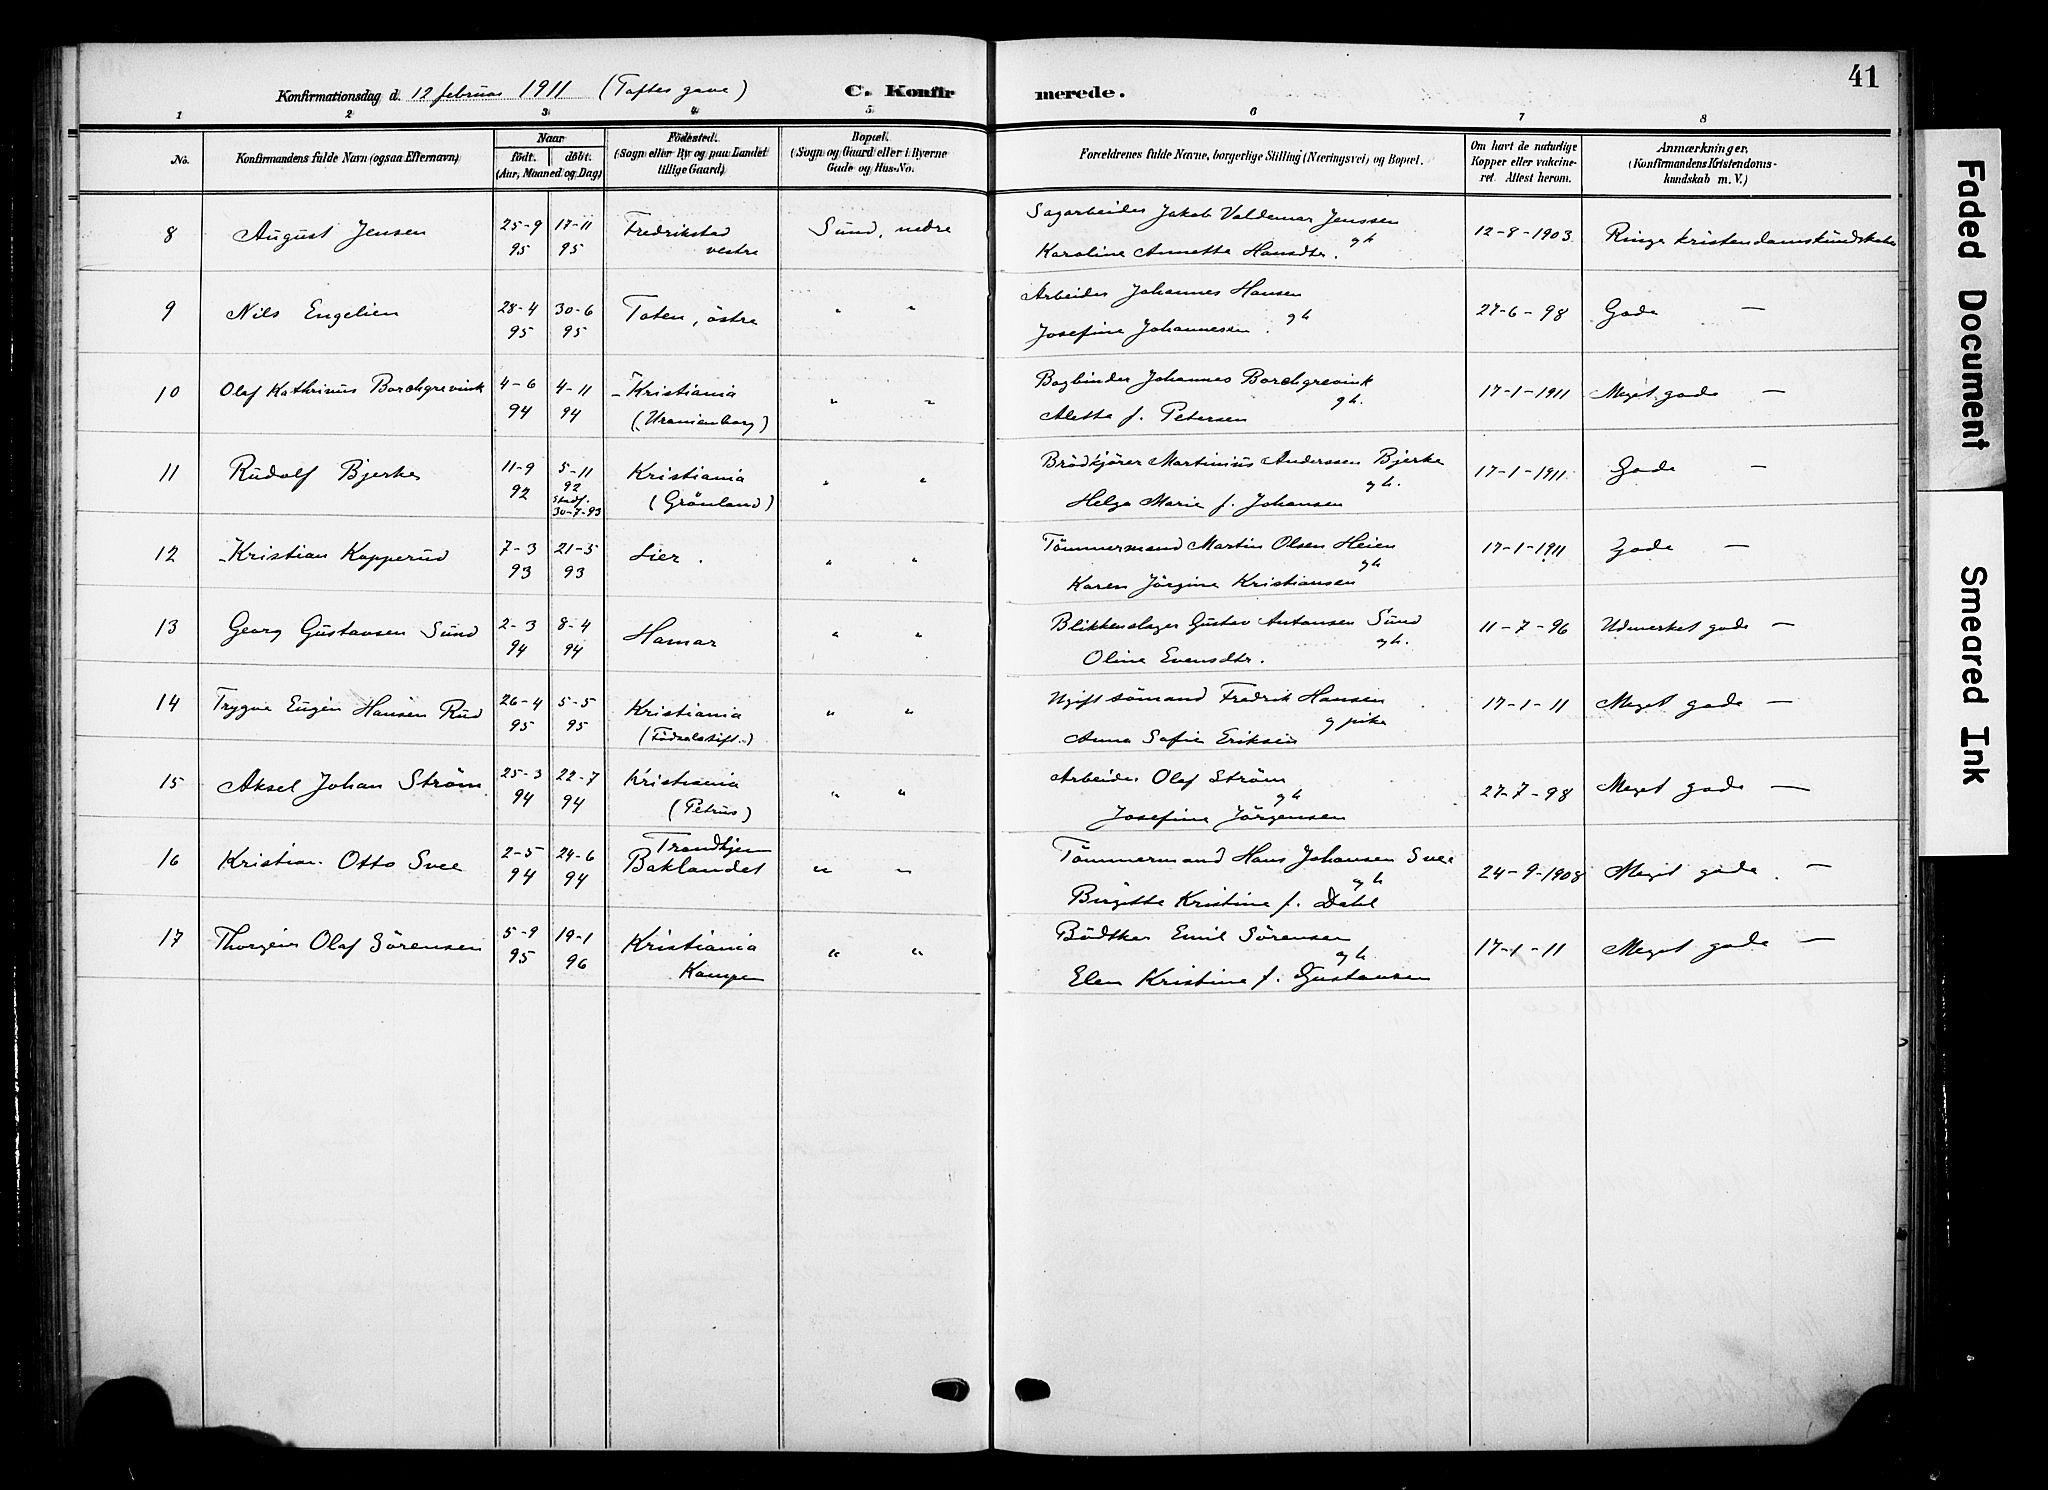 41
Konfirmationsdag d. 12 februar 1911 (Toftes gave) C. Konfirmerede.
1 2 3 4 5 6 7 8
No. Konfirmandens fulde Navn (ogsaa Efternavn) Naar født. døbt. (Aar, Maaned og Dag) Fødested. (Sogn eller By og paa Landet tillige Gaard) Bopæl. (Sogn og Gaard eller i Byerne Gade og Hus-No. Forældrenes fulde Navne, borgerlige Stilling (Næringsvei) og Bopæl. Om havt de naturlige Kopper eller vakcineret. Attest herom. Anmærkninger, (Konfirmandens Kristendomskundskab m. V.)
8 August Jensen 25-9 95 17-11 95 Fredrikstad vestre Sund, nedre Sagarbeider Jakob Valdemar Jenssen gh Karoline Annette Hansdtr. 12-8-1903 Ringe kristendomskundskaber
9 Nils Engelien 28-4 95 30-6 95 Toten, östre " " Arbeider Johannes Hansen gh Josefine Johannessen. 27-6-98 Gode —
10 Olaf Kathrinus Borchgrevink 4-6 94 4-11 94 Kristiania (Uranienborg) " " Bogbinder Johannes Borchgrevink gh. Alette f. Petersen 17-1-1911 Meget gode —
11 Rudolf Bjerke 11-9 92 5-11 92 Stadf. 30-7-93 Kristiania (Grönland) " " Brödkjörer Martinius Anderssen Bjerke gh. Helga Marie f. Johansen 17-1-1911 Gode —
12 Kristian Kopperud 7-3 93 21-5 93 Lier. " " Tömmermand Martin Olsen Heien gh Karen Jörgine Kristiansen 17-1-1911 Gode —
13 Georg Gustavsen Sund 2-3 94 8-4 94 Hamar " " Blikkenslager Gustav Antonsen Sund gh. Oline Evensdtr. 11-7-96 Udmerket gode —
14 Trygve Eugen Hansen Rud 26-4 95 5-5 95 Kristiania (Födselsstift.) " " Ugift sömand Fredrik Hansen g pike Anna Sofie Eriksen 17-1-11 Meget gode —
15 Aksel Johan Ström 25-3 94 22-7 94 Kristiania (Petrus) " " Arbeider Olaf Ström gh Josefine Jörgensen 27-7-98 Meget gode —
16 Kristian Otto Svee 2-5 94 24-6 94 Trondhjem Baklandet " " Tömmermand Hans Johansen Svee gh Birgitte Kristine f. Dahl 24-9-1908 Meget gode. —
17 Thorgeir Olaf Sörensen 5-9 95 19-1 96 Kristiania Kampen " " Bödtker Emil Sörensen gh. Elen Kristine f. Gustavsen 17-1-11 Meget gode —
Faded Document
Smeared Ink